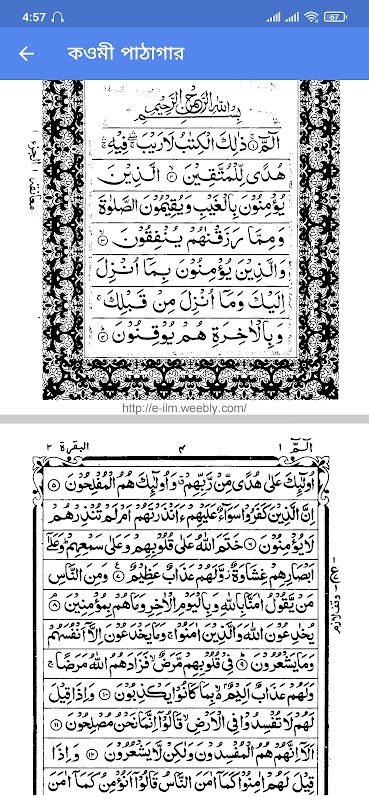 4:57
67
কওমী পাঠাগার
بِسْمِ اللهِ الرَّحْمٰنِ الرَّحِيْمِ
الٓمّٓ ۚ۝۱ ذٰلِكَ الْكِتٰبُ لَا رَيْبَ ۛ فِيْهِ ۛ
هُدًى لِّلْمُتَّقِيْنَ ۝۲ الَّذِيْنَ
يُؤْمِنُوْنَ بِالْغَيْبِ وَيُقِيْمُوْنَ الصَّلٰوةَ
وَمِمَّا رَزَقْنٰهُمْ يُنْفِقُوْنَ ۝۳
وَالَّذِيْنَ يُؤْمِنُوْنَ بِمَاۤ اُنْزِلَ
اِلَيْكَ وَمَاۤ اُنْزِلَ مِنْ قَبْلِكَ ۚ
وَبِالْاٰخِرَةِ هُمْ يُوْقِنُوْنَ ۝۴
http://e-ilm.weebly.com/
الٓمّٓ ۱ ۴ البقرة ۲
اُولٰٓئِكَ عَلٰى هُدًى مِّنْ رَّبِّهِمْ ۗ وَاُولٰٓئِكَ هُمُ الْمُفْلِحُوْنَ ۝۵
اِنَّ الَّذِيْنَ كَفَرُوْا سَوَآءٌ عَلَيْهِمْ ءَاَنْذَرْتَهُمْ اَمْ لَمْ تُنْذِرْهُمْ
لَا يُؤْمِنُوْنَ ۝۶ خَتَمَ اللهُ عَلٰى قُلُوْبِهِمْ وَعَلٰى سَمْعِهِمْ ؕ وَعَلٰۤى
اَبْصَارِهِمْ غِشَاوَةٌ ۫ وَّلَهُمْ عَذَابٌ عَظِيْمٌ ۝۷ وَمِنَ النَّاسِ
مَنْ يَّقُوْلُ اٰمَنَّا بِاللهِ وَبِالْيَوْمِ الْاٰخِرِ وَمَا هُمْ بِمُؤْمِنِيْنَ ۝۸
يُخٰدِعُوْنَ اللهَ وَالَّذِيْنَ اٰمَنُوْا ۚ وَمَا يَخْدَعُوْنَ اِلَّاۤ اَنْفُسَهُمْ
وَمَا يَشْعُرُوْنَ ۝۹ فِيْ قُلُوْبِهِمْ مَّرَضٌ ۙ فَزَادَهُمُ اللهُ مَرَضًا ۚ
وَلَهُمْ عَذَابٌ اَلِيْمٌ ۙ بِمَا كَانُوْا يَكْذِبُوْنَ ۝۱۰ وَاِذَا قِيْلَ
لَهُمْ لَا تُفْسِدُوْا فِي الْاَرْضِ ۙ قَالُوْۤا اِنَّمَا نَحْنُ مُصْلِحُوْنَ ۝۱۱
اَلَاۤ اِنَّهُمْ هُمُ الْمُفْسِدُوْنَ وَلٰكِنْ لَّا يَشْعُرُوْنَ ۝۱۲ وَاِذَا
قِيْلَ لَهُمْ اٰمِنُوْا كَمَاۤ اٰمَنَ النَّاسُ قَالُوْۤا اَنُؤْمِنُ كَمَاۤ اٰمَنَ